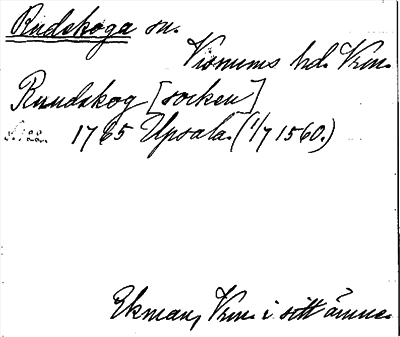 Rudskoga sn.
Visnums hd. Vrm.
Ruudskog [socken]
s. 122. 1765 Upsala. (1/7 1560.)
Ekman, Vrm. i sitt ämne.